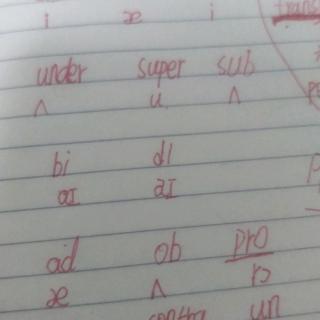 i æ i trans
under super sub
ʌ u ʌ
bi di
aɪ aɪ
ad ob pro
æ ʌ
contra un